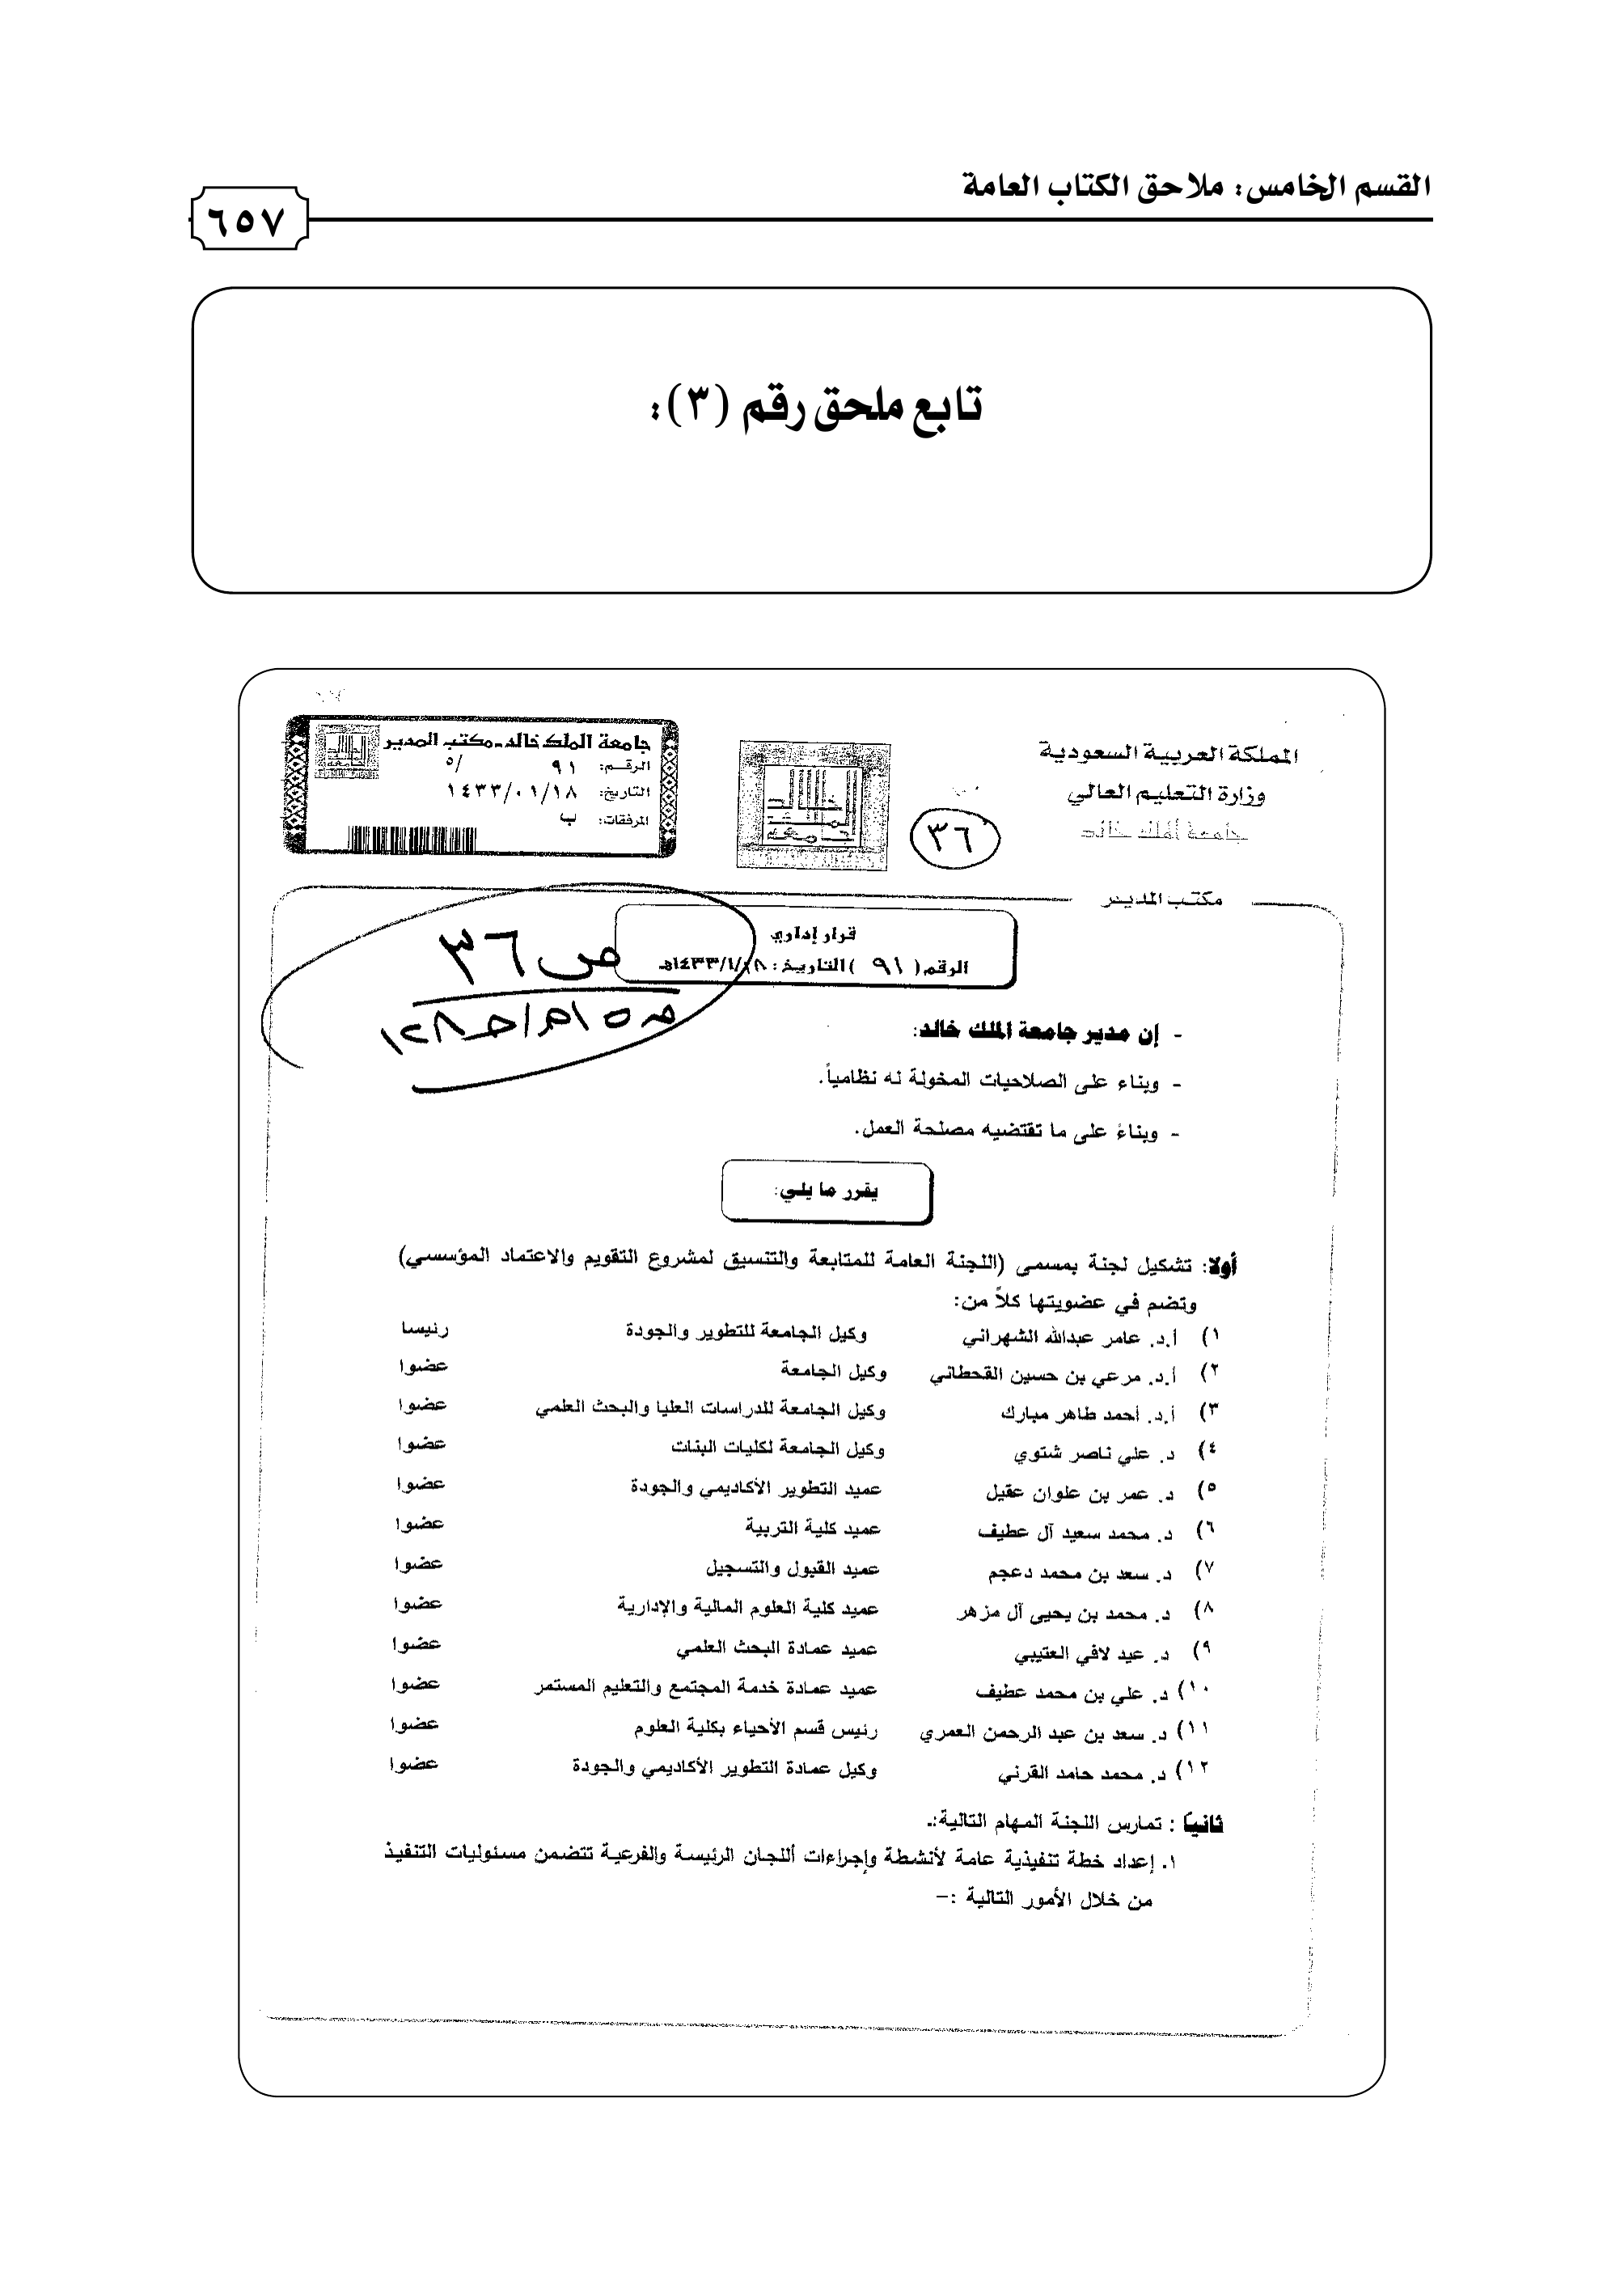 القسم الخامس: ملاحق الكتاب العامة
٦٥٧
تابع ملحق رقم (٣):
المملكة العربية السعودية
وزارة التعليم العالي
جامعة الملك خالد
مكتب المدير
٣٦
جامعة الملك خالد - مكتب المدير
الرقم: ٩١ /٥
التاريخ: ١٤٣٣/٠١/١٨
المرفقات: ب
قرار إداري
الرقم( ٩١ )التاريخ: ١٤٣٣/١/١٨هـ
ص ٣٦
- إن مدير جامعة الملك خالد:
- وبناء على الصلاحيات المخولة له نظامياً.
- وبناءً على ما تقتضيه مصلحة العمل.
يقرر ما يلي:
أولا: تشكيل لجنة بمسمى (اللجنة العامة للمتابعة والتنسيق لمشروع التقويم والاعتماد المؤسسي)
وتضم في عضويتها كلاً من:
١) أ.د. عامر عبدالله الشهراني وكيل الجامعة للتطوير والجودة رئيسا
٢) أ.د. مرعي بن حسين القحطاني وكيل الجامعة عضوا
٣) أ.د. أحمد طاهر مبارك وكيل الجامعة للدراسات العليا والبحث العلمي عضوا
٤) د. علي ناصر شتوي وكيل الجامعة لكليات البنات عضوا
٥) د. عمر بن علوان عقيل عميد التطوير الأكاديمي والجودة عضوا
٦) د. محمد سعيد آل عطيف عميد كلية التربية عضوا
٧) د. سعد بن محمد دعجم عميد القبول والتسجيل عضوا
٨) د. محمد بن يحيى آل مزهر عميد كلية العلوم المالية والإدارية عضوا
٩) د. عيد لافي العتيبي عميد عمادة البحث العلمي عضوا
١٠) د. علي بن محمد عطيف عميد عمادة خدمة المجتمع والتعليم المستمر عضوا
١١) د. سعد بن عبد الرحمن العمري رئيس قسم الأحياء بكلية العلوم عضوا
١٢) د. محمد حامد القرني وكيل عمادة التطوير الأكاديمي والجودة عضوا
ثانياً : تمارس اللجنة المهام التالية:ـ
١. إعداد خطة تنفيذية عامة لأنشطة وإجراءات أللجان الرئيسة والفرعية تتضمن مسئوليات التنفيذ
من خلال الأمور التالية :-